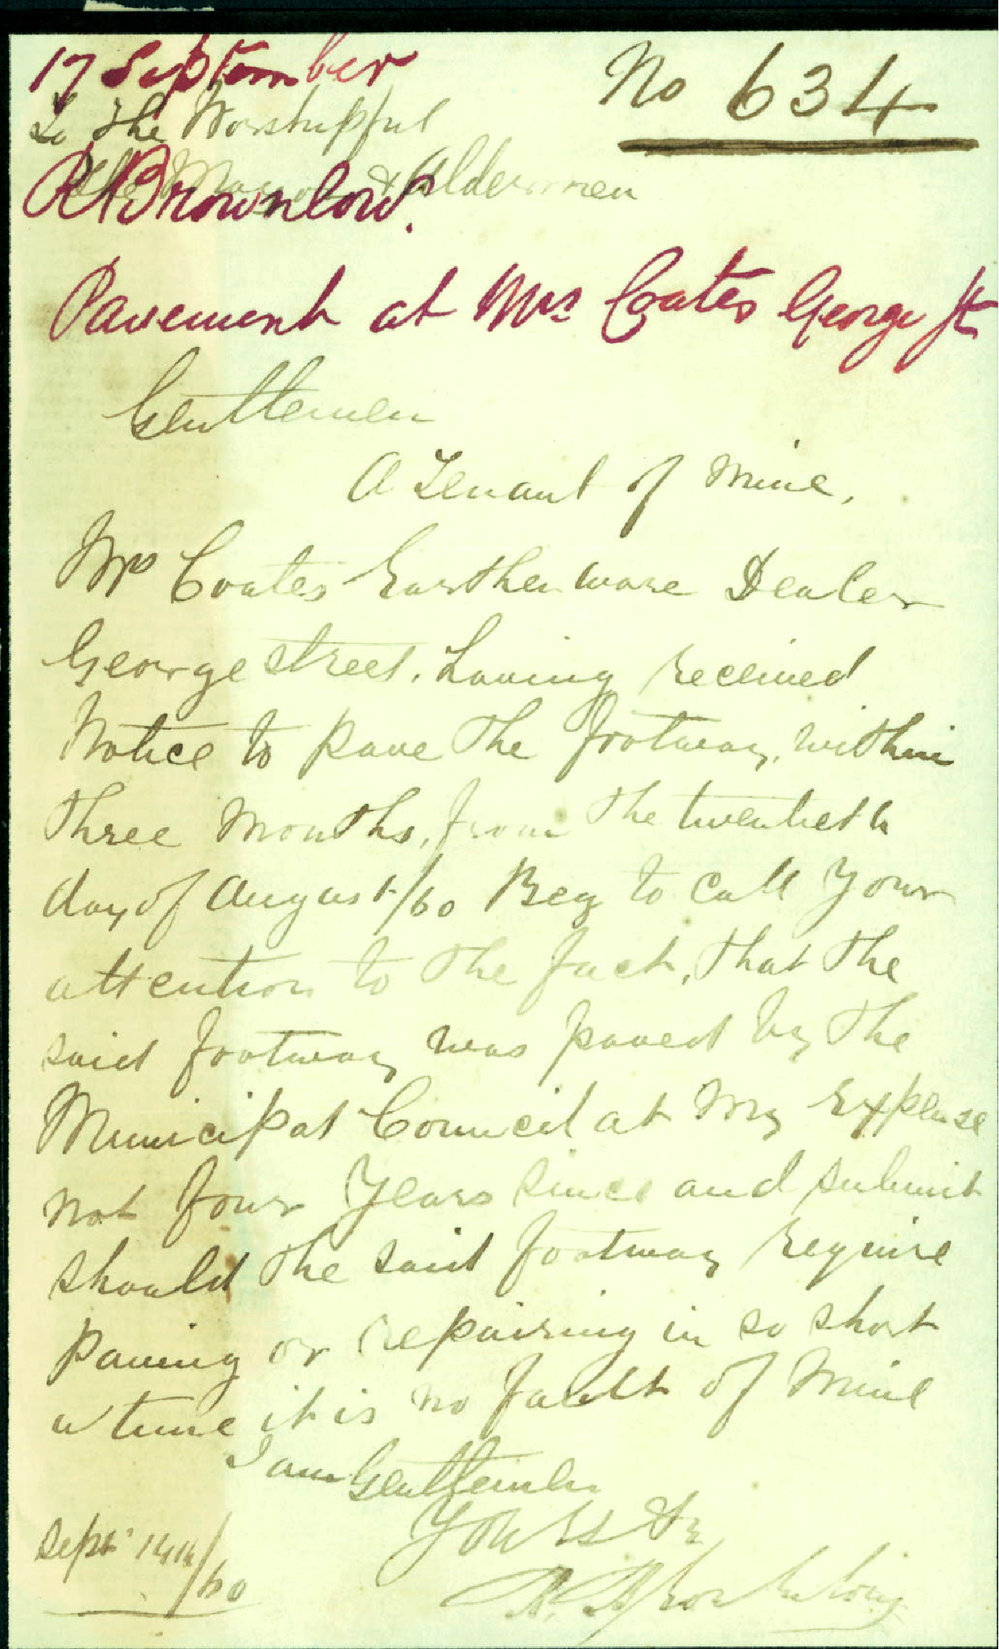 17 September
No 634
To the Worshipful
The Mayor & Aldermen
R Brownlow.
Pavement at Mrs Coates George St
Gentlemen
A Tenant of Mine,
Mrs Coates Earthenware Dealer
George street. having received
Notice to pave the footway, within
three Months, from the twentieth
day of August/60 Beg to call Your
attention to the fact, that the
said footway was paved by the
Municipal Council at My Expense
not four Years since and submit
should the said footway require
paving or repairing in so short
a time it is no fault of Mine
I am Gentlemen
Yours &c
Sept 14th/60
R. Brownlow